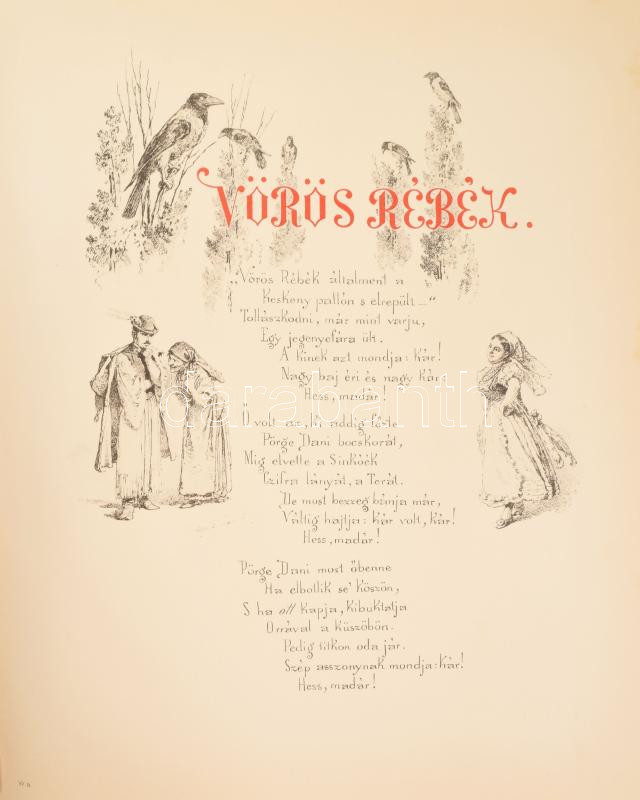 VÖRÖS RÉBÉK.
„Vörös Rébék általment a
Keskeny pallón s elrepült —"
Tollászkodni, már mint varju,
Egy jegenyefára ült.
A kinek azt mondja: kár!
Nagy baj éri és nagy kár;
Hess, madár!
Ő volt az, ki addig főzte
Pörge Dani bocskorát,
Míg elvette a Sinkóék
Czifra lányát, a Terát.
De most bezzeg bánja már,
Váltig hajtja: kár volt, kár!
Hess, madár!
Pörge Dani most őbenne
Ha elbotlik se' köszön,
S ha ott kapja, kibuktatja
Orrával a küszöbön.
Pedig titkon oda jár.
Szép asszonynak mondja: kár!
Hess, madár!
darabanth